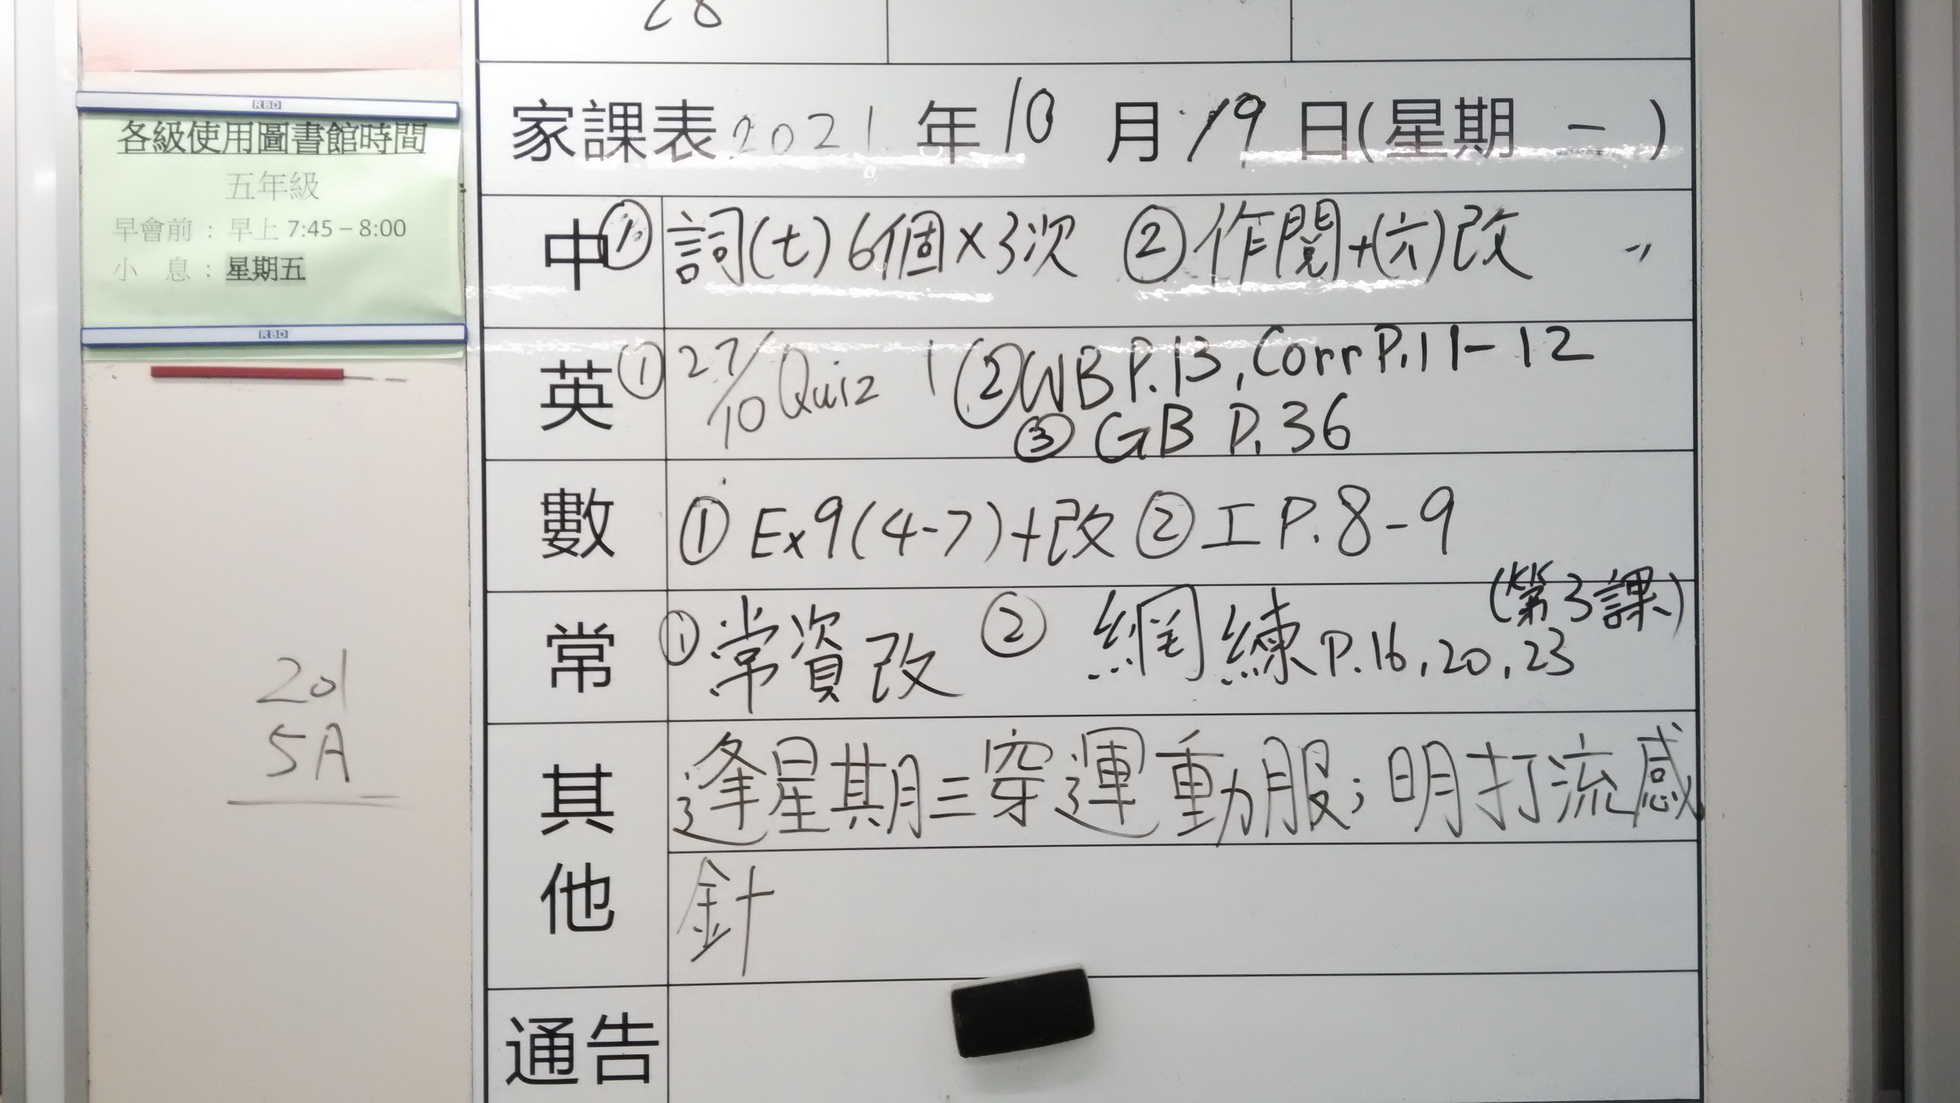 28
家課表 2021 年 10 月 19 日(星期 一 )
中 ① 詞(七) 6個×3次 ② 作閱+(六)改
英 ① 27/10 Quiz 1 ② WB P.13, Corr P.11-12
③ GB P.36
數 ① Ex9(4-7)+改 ② 工 P.8-9
常 ① 常資改 ② 網練 P.16, 20, 23 (第3課)
其他 逢星期三穿運動服; 明打流感
針
通告
RBD
各級使用圖書館時間
五年級
早會前 : 早上 7:45 – 8:00
小 息 : 星期五
RBD
201
5A